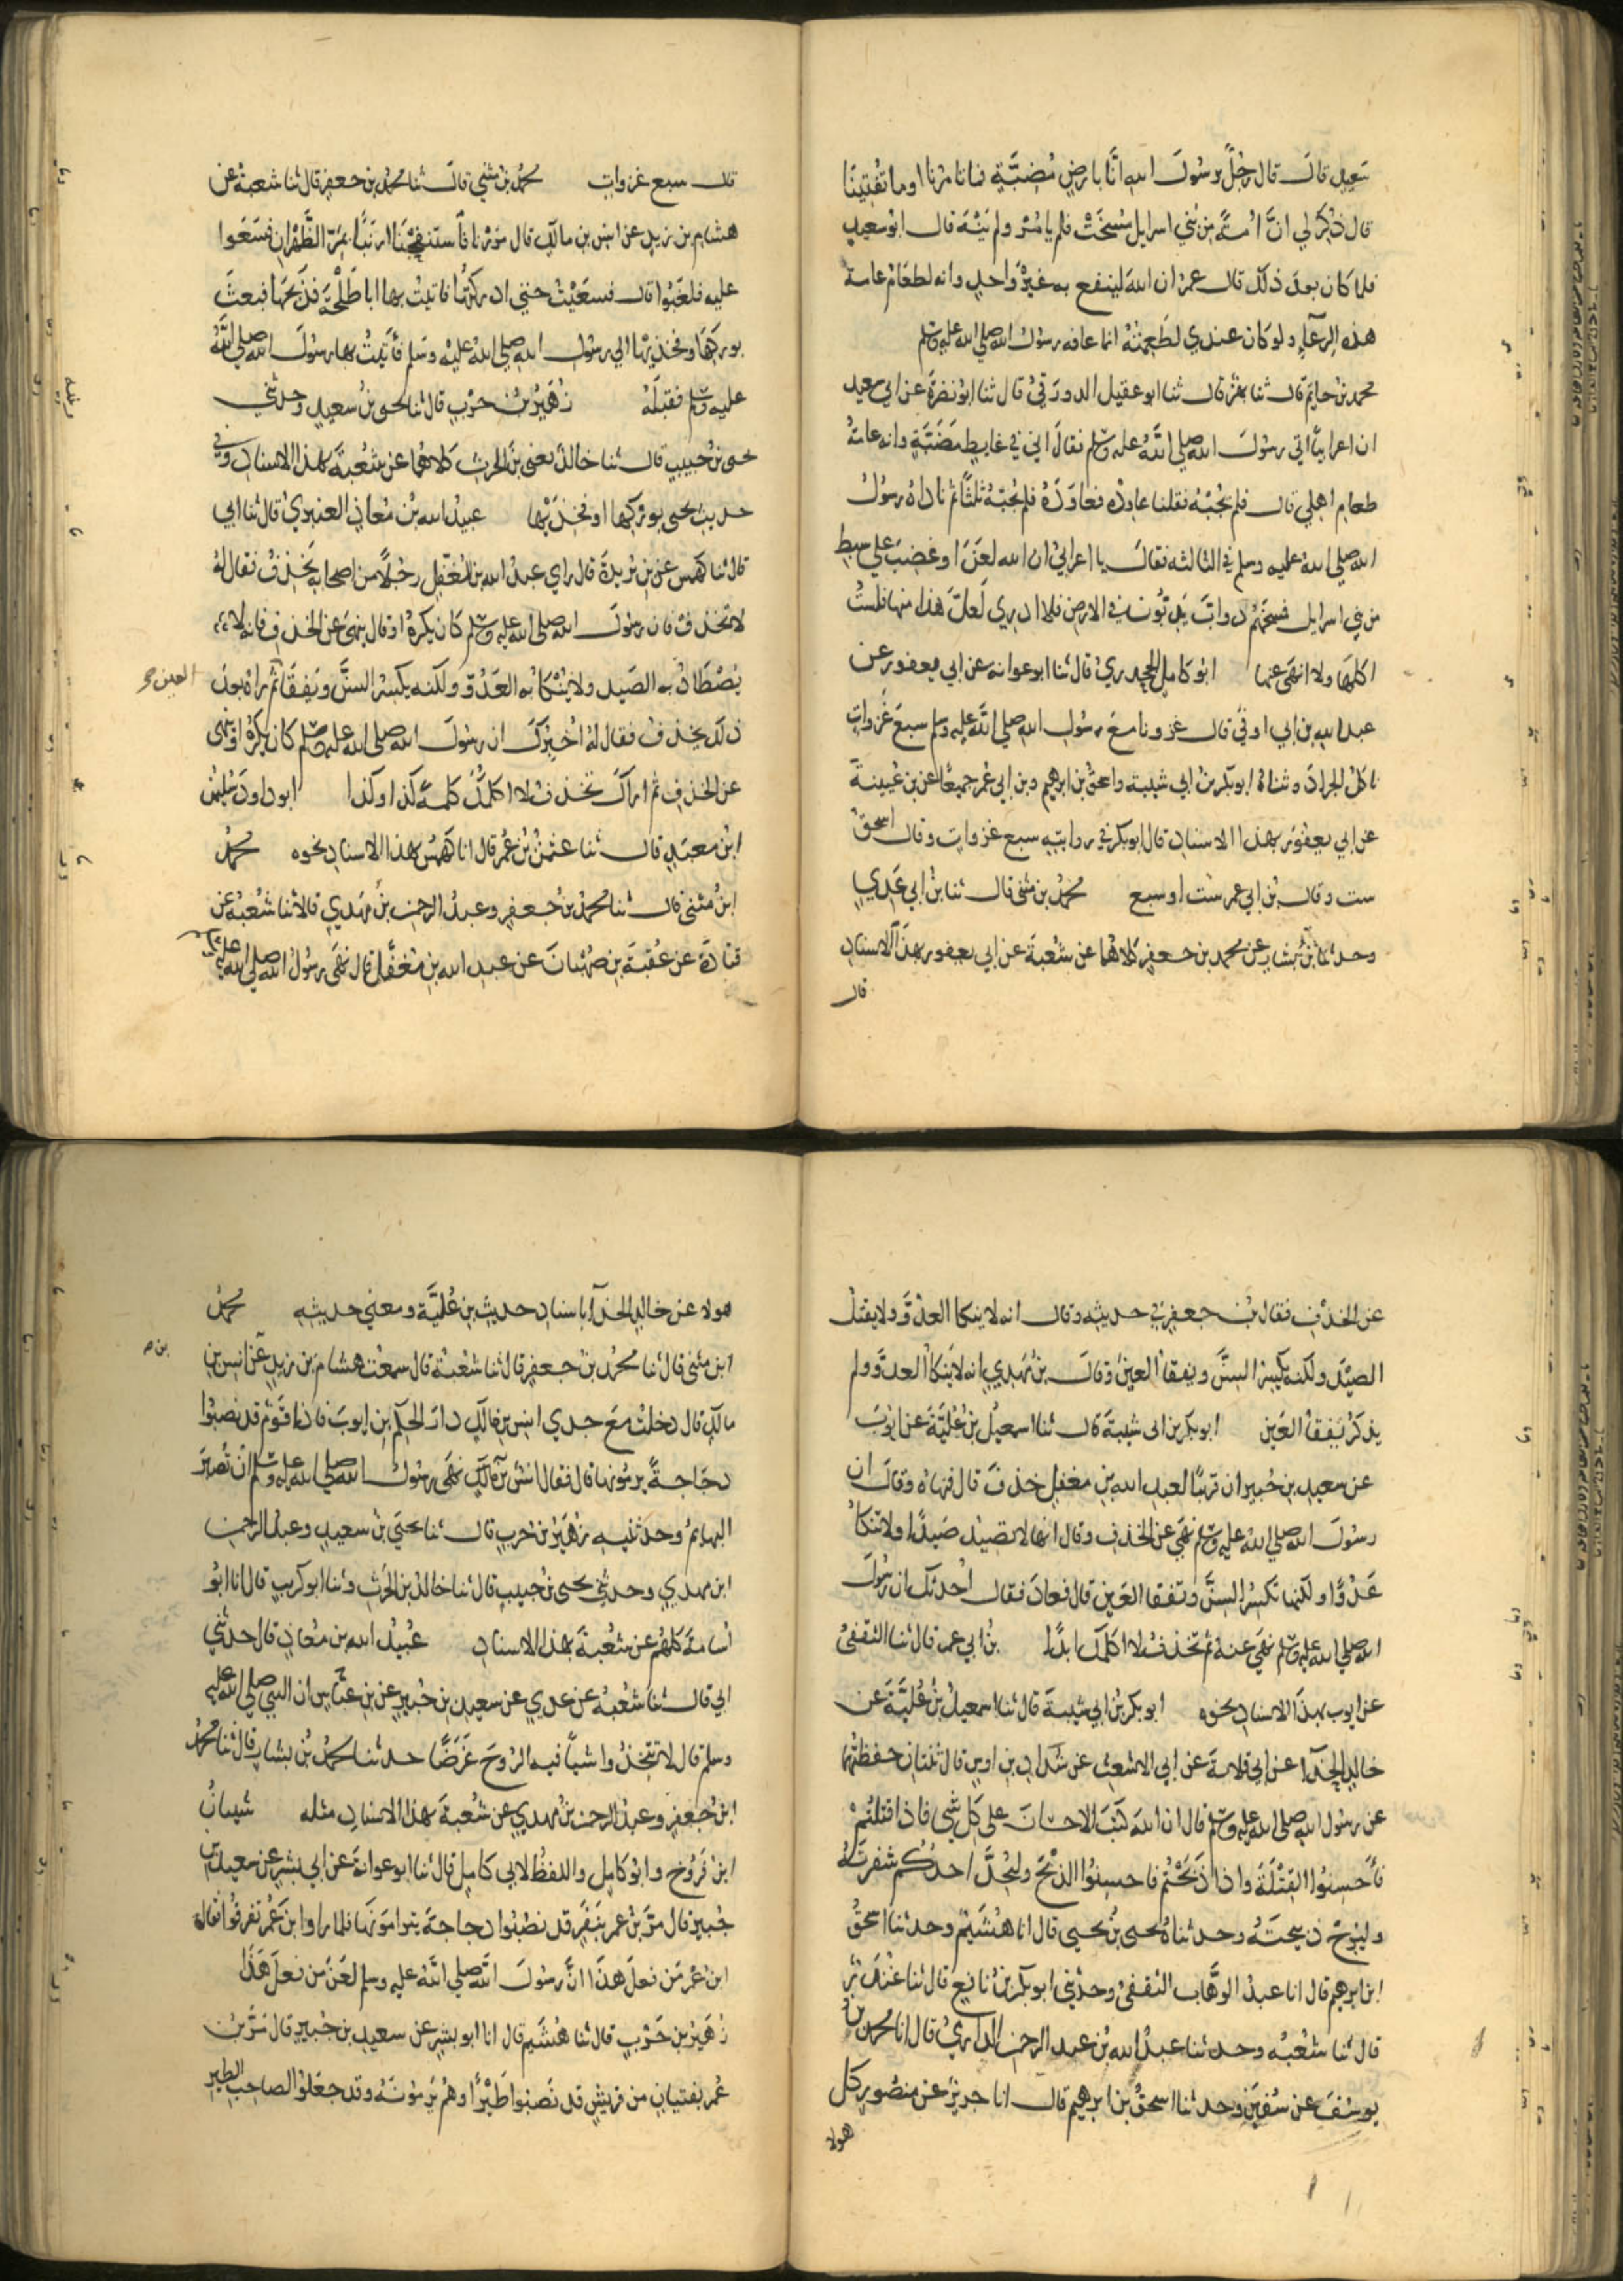 سعيد قال قال رجل يرسول الله انا بارض مضبة فما تامرنا او ما تفتينا
قال ذكر لي ان امة من بني اسرايل مسخت فلم يامر ولم ينه قال ابو سعيد
فلما كان بعد ذلك قال عمر ان الله لينفع به غير واحد وانه لطعام عامة
هذه الرعاء ولو كان عندي لطعمته انما عافه رسول الله صلى الله عليه وسلم
محمد بن حاتم قال ثنا بهز قال ثنا ابو عقيل الدورقي قال ثنا ابو نضرة عن ابي سعيد
ان اعرابيا اتى رسول الله صلى الله عليه وسلم فقال اني في غايط مضبة وانه عامة
طعام اهلي قال فلم يجبه فقلنا عاوده فعاوده فلم يجبه ثلثا ثم ناداه رسول
الله صلى الله عليه وسلم في الثالثة فقال يا اعرابي ان الله لعن او غضب على سبط
من بني اسرايل فمسخهم دواب يدبون في الارض فلا ادري لعل هذا منها فلست
اكلها ولا انهى عنها ابو كامل الجحدري قال ثنا ابو عوانة عن ابي يعفور عن
عبد الله بن ابي اوفى قال غزونا مع رسول الله صلى الله عليه وسلم سبع غزوات
ناكل الجراد وثناه ابو بكر بن ابي شيبة واسحق بن ابرهيم وبن ابي عمر جميعا عن بن عيينة
عن ابي يعفور بهذا الاسناد قال ابو بكر في روايته سبع غزوات وقال اسحق
ست وقال بن ابي عمر ست او سبع محمد بن مثنى قال ثنا بن ابي عدي
وحدثنا بن بشار عن محمد بن جعفر كلاهما عن شعبة عن ابي يعفور بهذا الاسناد
قال
قال سبع غزوات محمد بن مثنى قال ثنا محمد بن جعفر قال ثنا شعبة عن
هشام بن زيد عن انس بن مالك قال مررنا فاستنفجنا ارنبا بمر الظهران فسعوا
عليه فلغبوا قال فسعيت حتى ادركتها فاتيت بها ابا طلحة فذبحها فبعث
بوركها وفخذيها الى رسول الله صلى الله عليه وسلم فاتيت بها رسول الله صلى الله
عليه وسلم فقبله زهير بن حرب قال ثنا يحيى بن سعيد وحدثني
يحيى بن حبيب قال ثنا خالد يعني بن الحرث كلاهما عن شعبة بهذا الاسناد وفي
حديث يحيى بوركها او فخذيها عبيد الله بن معاذ العنبري قال ثنا ابي
قال ثنا كهمس عن بن بريدة قال راى عبد الله بن المغفل رجلا من اصحابه يخذف فقال له
لا تخذف فان رسول الله صلى الله عليه وسلم كان يكره او قال ينهى عن الخذف فانه لا
يصطاد به الصيد ولا ينكا به العدو ولكنه يكسر السن ويفقا ثم راه بعد
العين صح
ذلك يخذف فقال له اخبرك ان رسول الله صلى الله عليه وسلم كان يكره او ينهى
عن الخذف ثم اراك تخذف لا اكلمك كلمة كذا وكذا ابو داود سليمن
ابن معبد قال ثنا عثمن بن عمر قال انا كهمس بهذا الاسناد نحوه محمد
ابن مثنى قال ثنا محمد بن جعفر وعبد الرحمن بن مهدي قالا ثنا شعبة عن
قتادة عن عقبة بن صهبان عن عبد الله بن مغفل قال نهى رسول الله صلى الله عليه وسلم
عن الخذف فقال بن جعفر في حديثه وقال انه لا ينكا العدو ولا يقتل
الصيد ولكنه يكسر السن ويفقا العين وقال بن مهدي انه لا ينكا العدو ولم
يذكر يفقا العين ابو بكر بن ابي شيبة قال ثنا اسمعيل بن علية عن ايوب
عن سعيد بن جبير ان قريبا لعبد الله بن مغفل خذف قال فنهاه وقال ان
رسول الله صلى الله عليه وسلم نهى عن الخذف وقال انها لا تصيد صيدا ولا تنكا
عدوا ولكنها تكسر السن وتفقا العين قال فعاد فقال احدثك ان رسول
الله صلى الله عليه وسلم نهى عنه ثم تخذف لا اكلمك ابدا بن ابي عمر قال ثنا الثقفي
عن ايوب بهذا الاسناد نحوه ابو بكر بن ابي شيبة قال ثنا اسمعيل بن علية عن
خالد الحذا عن ابي قلابة عن ابي الاشعث عن شداد بن اوس قال ثنتان حفظتهما
عن رسول الله صلى الله عليه وسلم قال ان الله كتب الاحسان على كل شي فاذا قتلتم
فاحسنوا القتلة واذا ذبحتم فاحسنوا الذبح وليحد احدكم شفرته
وليرح ذبيحته وحدثناه يحيى بن يحيى قال انا هشيم وحدثنا اسحق
ابن ابرهيم قال انا عبد الوهاب الثقفي وحدثني ابو بكر بن نافع قال ثنا غندر
قال ثنا شعبه وحدثنا عبد الله بن عبد الرحمن الدارمي قال انا محمد بن
يوسف عن سفين وحدثنا اسحق بن ابرهيم قال انا جرير عن منصور كل
هولا
هولا عن خالد الحذا باسناد حديث بن علية ومعنى حديثه محمد
ابن مثنى قال ثنا محمد بن جعفر قال ثنا شعبة قال سمعت هشام بن زيد عن انس بن
مالك قال دخلت مع جدي انس بن مالك دار الحكم بن ايوب فاذا قوم قد نصبوا
دجاجة يرمونها قال فقال انس بن مالك نهى رسول الله صلى الله عليه وسلم ان تصبر
البهايم وحدثنيه زهير بن حرب قال ثنا يحيى بن سعيد وعبد الرحمن
ابن مهدي وحدثني يحيى بن حبيب قال ثنا خالد بن الحرث وثنا ابو كريب قال انا ابو
اسامة كلهم عن شعبة بهذا الاسناد عبيد الله بن معاذ قال حدثني
ابي قال ثنا شعبه عن عدي عن سعيد بن جبير عن بن عباس ان النبي صلى الله عليه
وسلم قال لا تتخذوا شيا فيه الروح غرضا حدثنا محمد بن بشار قال ثنا محمد
ابن جعفر وعبد الرحمن بن مهدي عن شعبة بهذا الاسناد مثله شيبان
ابن فروخ وابو كامل واللفظ لابي كامل قال ثنا ابو عوانة عن ابي بشر عن سعيد بن
جبير قال مر بن عمر بنفر قد نصبوا دجاجة يترامونها فلما راوا ابن عمر تفرقوا فقال
ابن عمر من فعل هذا ان رسول الله صلى الله عليه وسلم لعن من فعل هذا
زهير بن حرب قال ثنا هشيم قال انا ابو بشر عن سعيد بن جبير قال مر بن
عمر بفتيان من قريش قد نصبوا طيرا وهم يرمونه وقد جعلوا لصاحب الطير